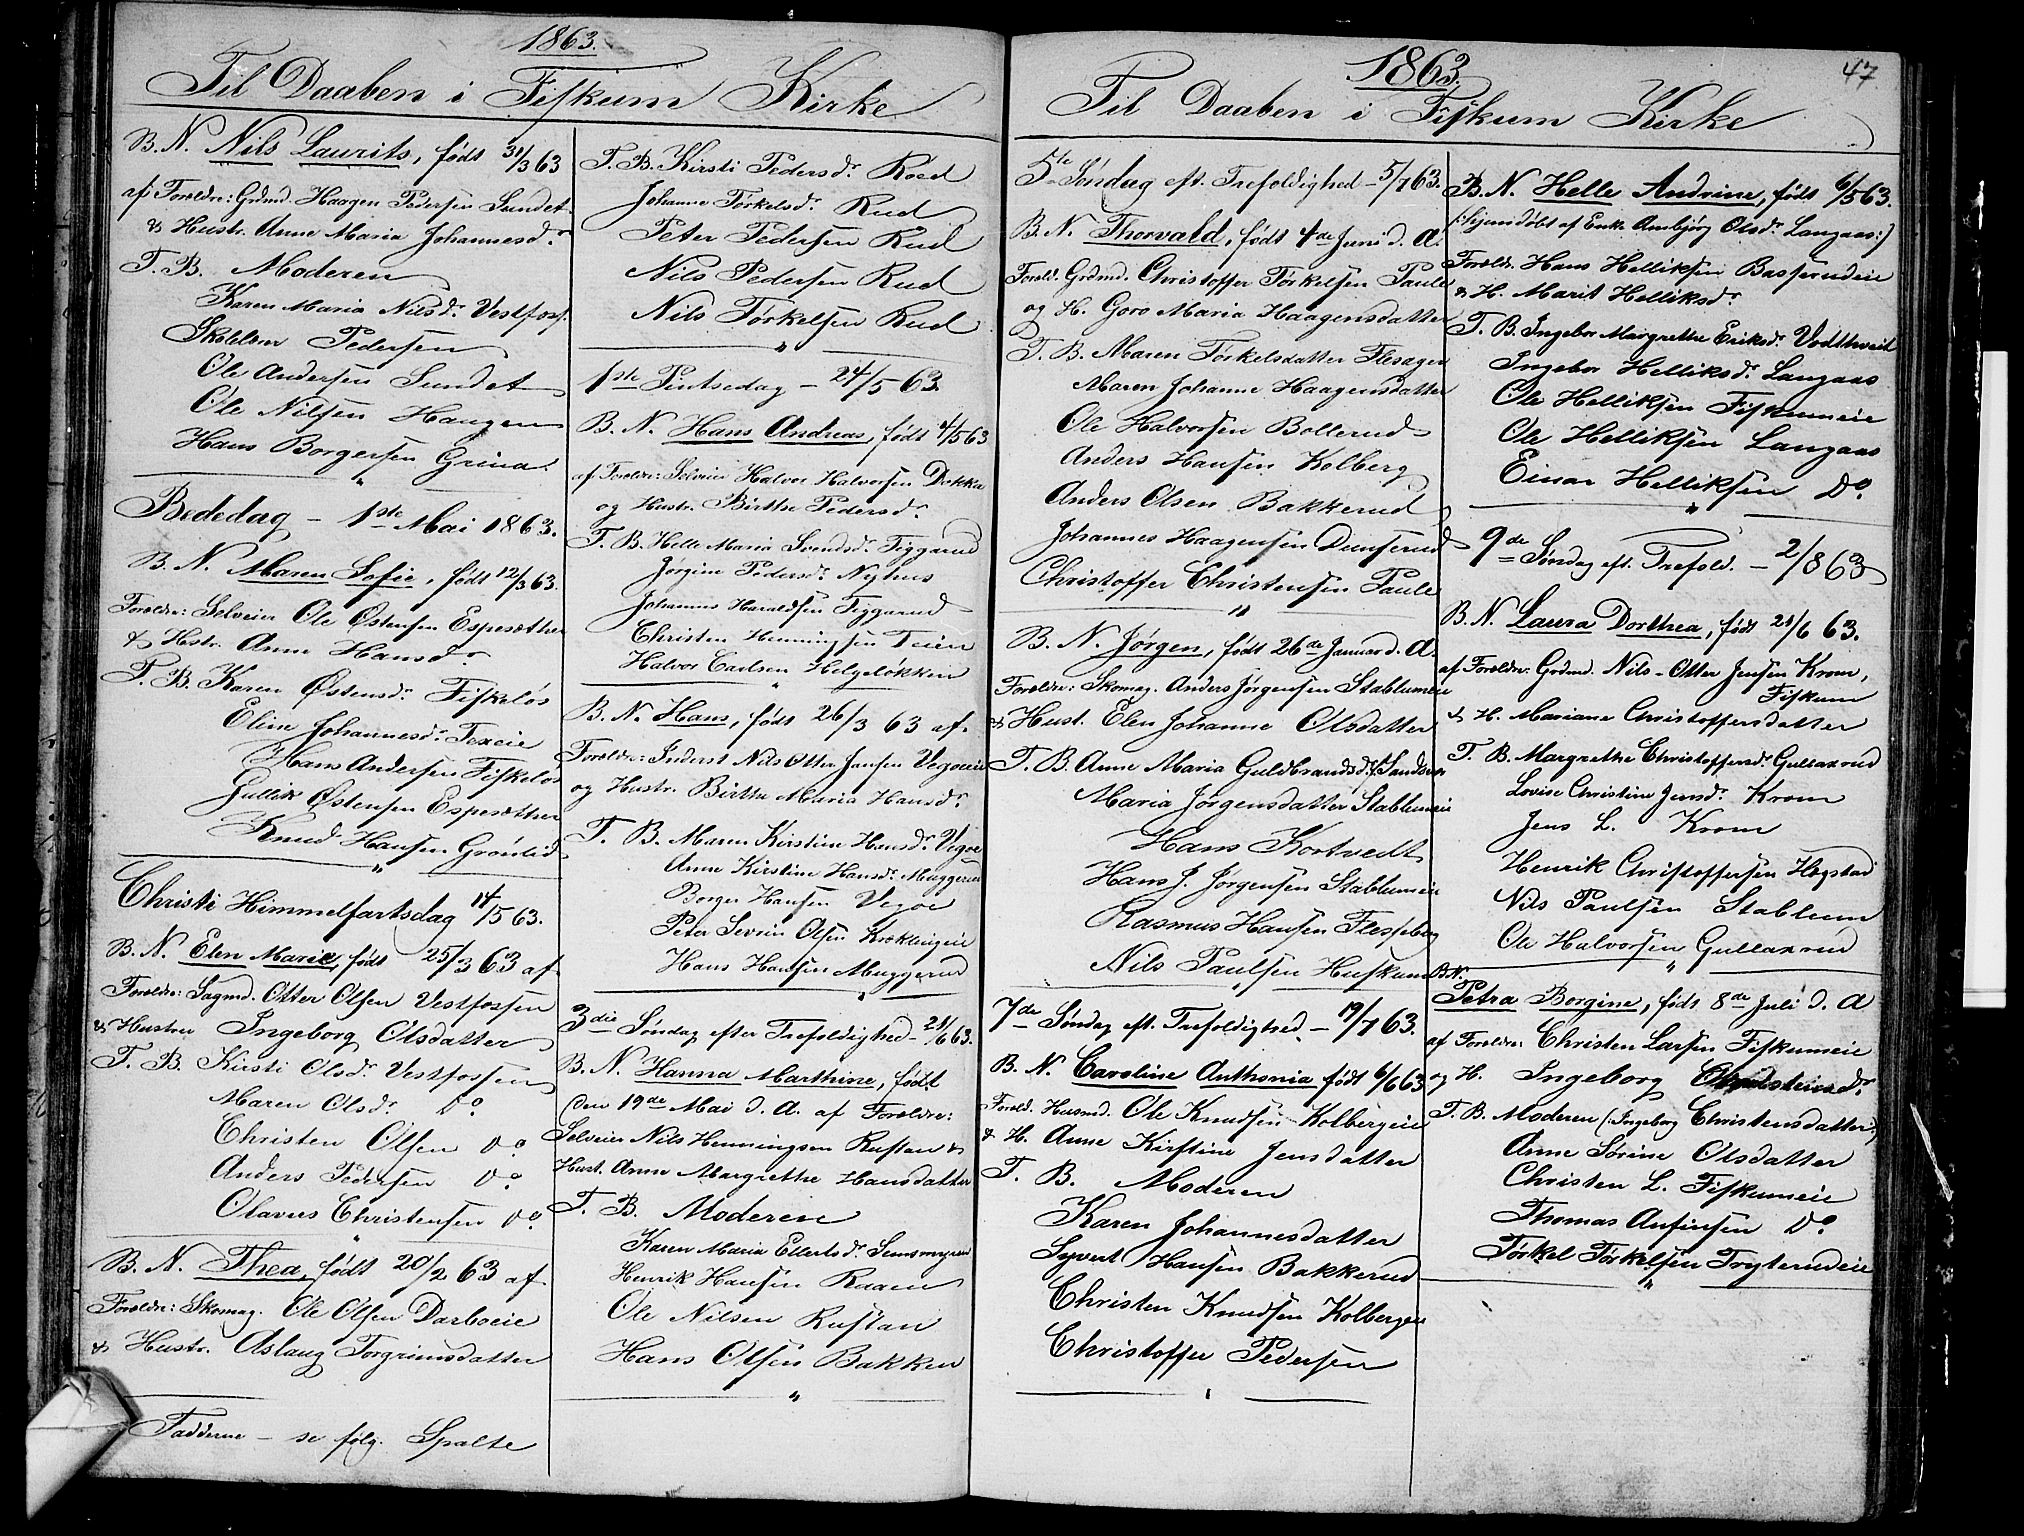 1863.
Til Daaben i Fiskum Kirke
B. N. Nils Laurits, født 31/3 63
af Foreldre: Grdmd. Haagen Pedersen Sundet
& Hustr. Anne Maria Johannesd.r
T. B. Moderen
Karen Maria Nilsd.r Vestfoss.
Pedersen
Ole Andersen Sundet
Ole Nilsen Haugen
Hans Borgersen Grina
"
Bededag – 1ste Mai 1863.
B. N. Maren Sofie, født 12/3 63.
Foreldre: Selveier Ole Østensen Espesæther
& Hstr. Anne Hansd.r
T. B. Karen Østensd.r Fiskeløs
Eline Johannesd.r Texeie
Hans Andersen Fiskeløs
Gullik Østensen Espesæther
Knud Hansen Grønlid
"
Christi Himmelfartsdag 14/5 63.
B. N. Elen Marie, født 25/3 63 af
Foreldre: Sagmd. Otter Olsen Vestfossen
& Hustru Ingeborg Olsdatter
T. B. Kirsti Olsd.r Vestfossen
Maren Olsd.r Do
Christen Olsen Do
Anders Pedersen Do
Olavus Christensen Do
"
B. N. Thea, født 20/2 63 af
Foreldre: Skomag. Ole Olsen Darboeie
& Hustr. Aslaug Torgrimsdatter
Fadderne – se følg. Spalte
T. B. Kirsti Pedersd.r Roed
Johanne Torkelsd.r Rud
Peter Pedersen Rud
Nils Pedersen Rud
Nils Torkelsen Rud
"
1ste Pintsedag – 24/5 63.
B. N. Hans Andreas, født 4/5 63
af Foreldre: Selveier Halvor Halvorsen Dokka
og Hustr. Birthe Pedersd.r
T. B. Helle Maria Svendsd.r Figgarud
Jørgine Pedersd.r Nyhus
Johannes Haraldsen Figgarud
Christen Henningsen Teien
Halvor Carlsen Helgeløkken
"
B. N. Hans, født 26/3 63 af
Foreldre: Inderst Nils Otter Jansen Vegoeie
og Hustr. Birthe Maria Hansd.r
T. B. Maren Kirstine Hansd.r Vegoe
Anne Kirstine Hansd.r Muggerud
Borger Hansen Vegoe
Peter Sevrin Olsen Kroklingeie
Hans Hansen Muggerud
"
3die Søndag efter Trefoldighed – 21/6 63.
B. N. Hanna Marthine, født
den 19de Mai d. A. af Foreldre:
Selveier Nils Henningsen Rustan &
Hust. Anne Margrethe Hansdatter
T. B. Moderen
Karen Maria Ellertsd.r Semsmyren
Henrik Hansen Raaen
Ole Nilsen Rustan
Hans Olsen Bakken
"
1863.
47
Til Daaben i Fiskum Kirke
5te Søndag eft. Trefoldighed – 5/7 63.
B. N. Thorvald, født 4de Juni d. A.
Foreld. Grdmd. Christoffer Torkelsen Paule
og H. Goro Maria Haagensdatter
T. B. Maren Torkelsdatter Flesager
Maren Johanne Haagensdatter
Ole Halvorsen Bollerud
Anders Hansen Kolberg
Anders Olsen Bakkerud
Johannes Haagensen Dunserud
Christoffer Christensen Paule
"
B. N. Jørgen, født 26de Januar d. A.
Foreldre: Skomag. Anders Jørgensen Stablumeie
& Hust. Elen Johanne Olsdatter
T. B. Anne Maria Guldbrandsd.r
Maria Jørgensdatter Stablumeie
Hans Kortvedt
Hans J. Jørgensen Stablumeie
Rasmus Hansen Flesseberg
Nils Paulsen Huskum
"
7de Søndag eft. Trefoldighed – 19/7 63.
B. N. Caroline Anthonia født 6/6 63
Foreld. Husmd. Ole Knudsen Kolbergeie
& H. Anne Kirstine Jensdatter
T. B. Moderen
Karen Johannesdatter
Syvert Hansen Bakkerud
Christen Knudsen Kolbergeie
Christoffer Pedersen
B. N. Helle Andrine, født 6/5 63.
(:hjemdøbt af Enke Ambjør Olsd.r Langaas:)
Foreldr. Hans Helliksen Basserudeie
& H. Marit Helliksd.r
T. B. Ingebor Margrethe Eriksd.r Vodthveit
Ingebor Helliksd.r Langaas
Ole Helliksen Fiskumeie
Ole Helliksen Langaas
Einar Helliksen Do
"
9de Søndag eft. Trefold. – 2/8 63
B. N. Laura Dorthea, født 21/6 63.
af Foreldre: Grdmd. Nils-Otter Jensen Krom,
Fiskum
& H. Mariane Christoffersdatter
T. B. Margrethe Christoffersd.r Gullaxrud
Lovise Christine Jensd.r Krom
Jens L. Krom
Henrik Christoffersen Hogstad
Nils Paulsen Stablum
Ole Halvorsen Gullaxrud
"
B. N.
Petra Borgine, født 8de Juli d. A
af Foreldre: Christen Larsen Fiskumeie
og H. Ingeborg Christensd.r
T. B. Moderen (:Ingeborg Christensdatter:)
Anne Sørine Olsdatter
Christen L. Fiskumeie
Thomas Anfinsen Do
Torkel Torkelsen Tryterudeie
"